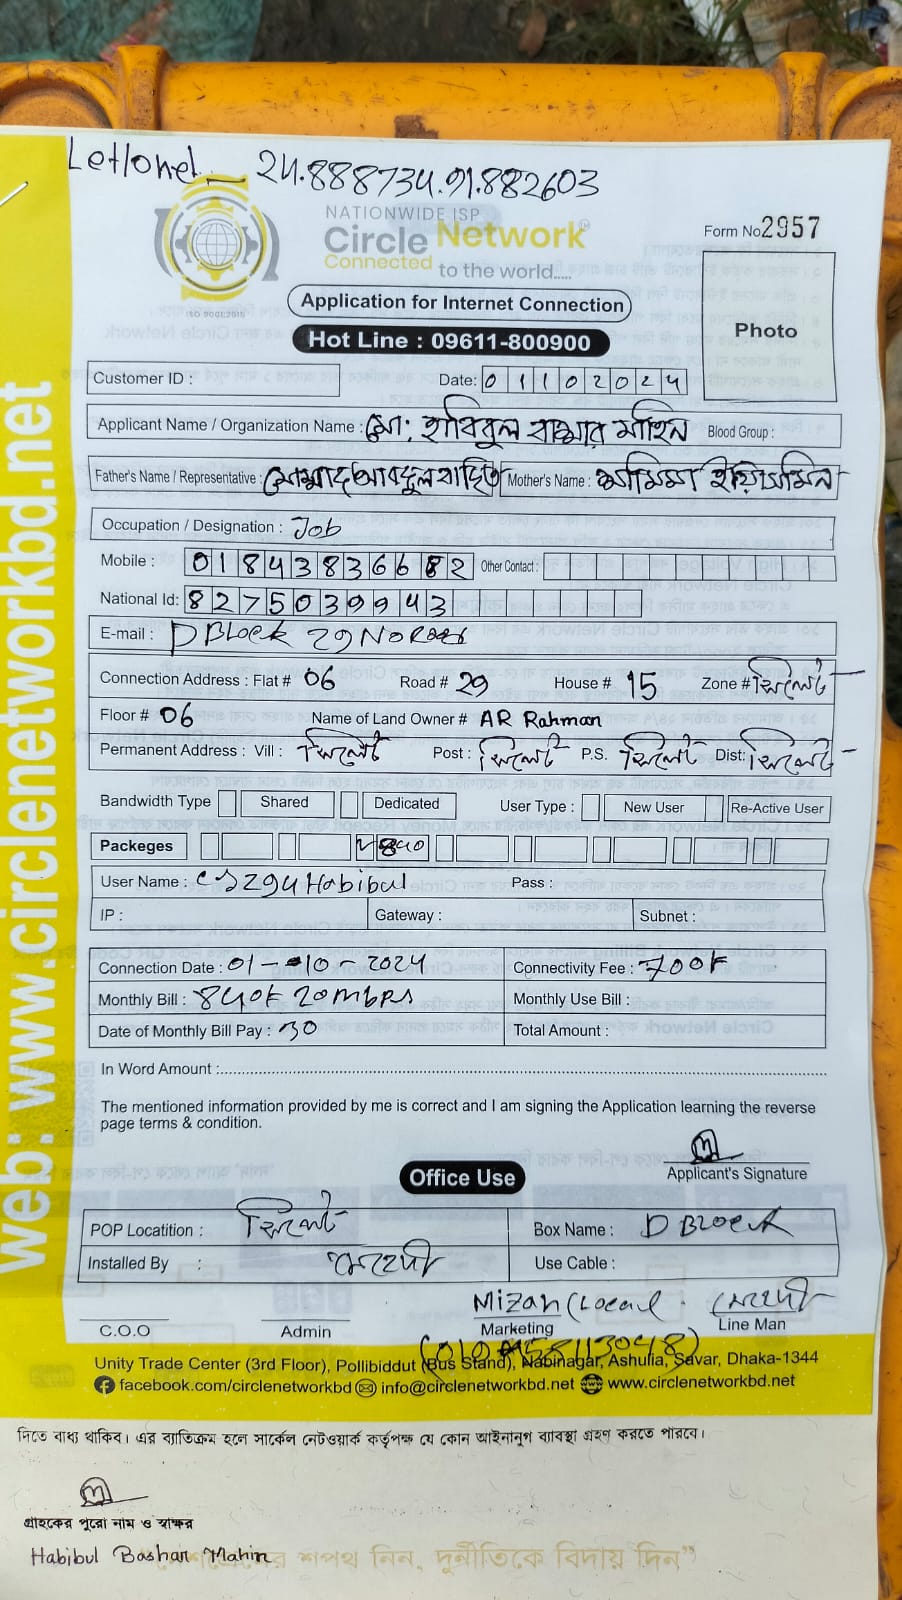 Letlonel - 24.888734.91.882603
NATIONWIDE ISP
Circle Network®
Connected to the world.....
ISO 9001:2015
Form No 2957
Application for Internet Connection
Photo
Hot Line : 09611-800900
Customer ID :
Date: 01102024
Applicant Name / Organization Name : মো: হাবিবুল বাশার মাহিন Blood Group :
Father's Name / Representative : Mother's Name : ইয়াসমিন
Occupation / Designation : Job
Mobile : 01843836682 Other Contact :
National Id: 8275039943
E-mail : D Block 29 No Road
Connection Address : Flat # 06 Road # 29 House # 15 Zone # সিলেট
Floor # 06 Name of Land Owner # AR Rahman
Permanent Address : Vill : সিলেট Post : সিলেট P.S. সিলেট Dist: সিলেট
Bandwidth Type Shared Dedicated User Type : New User Re-Active User
Packeges 840
User Name : Habibul Pass :
IP : Gateway : Subnet :
Connection Date : 01-10-2024 Connectivity Fee : 700৳
Monthly Bill : 840৳ 20mbps Monthly Use Bill :
Date of Monthly Bill Pay : 30 Total Amount :
In Word Amount :
The mentioned information provided by me is correct and I am signing the Application learning the reverse
page terms & condition.
Applicant's Signature
Office Use
POP Locatition : সিলেট Box Name : D Block
Installed By : মেহেদী Use Cable :
Mizan (Local মেহেদী
C.O.O Admin Marketing Line Man
Unity Trade Center (3rd Floor), Pollibiddut (Bus Stand), Nabinagar, Ashulia, Savar, Dhaka-1344
facebook.com/circlenetworkbd info@circlenetworkbd.net www.circlenetworkbd.net
web: www.circlenetworkbd.net
দিতে বাধ্য থাকিব। এর ব্যতিক্রম হলে সার্কেল নেটওয়ার্ক কর্তৃপক্ষ যে কোন আইনানুগ ব্যবস্থা গ্রহণ করতে পারবে।
গ্রাহকের পুরো নাম ও স্বাক্ষর
Habibul Bashar Mahin
শপথ নিন, দুর্নীতিকে বিদায় দিন"